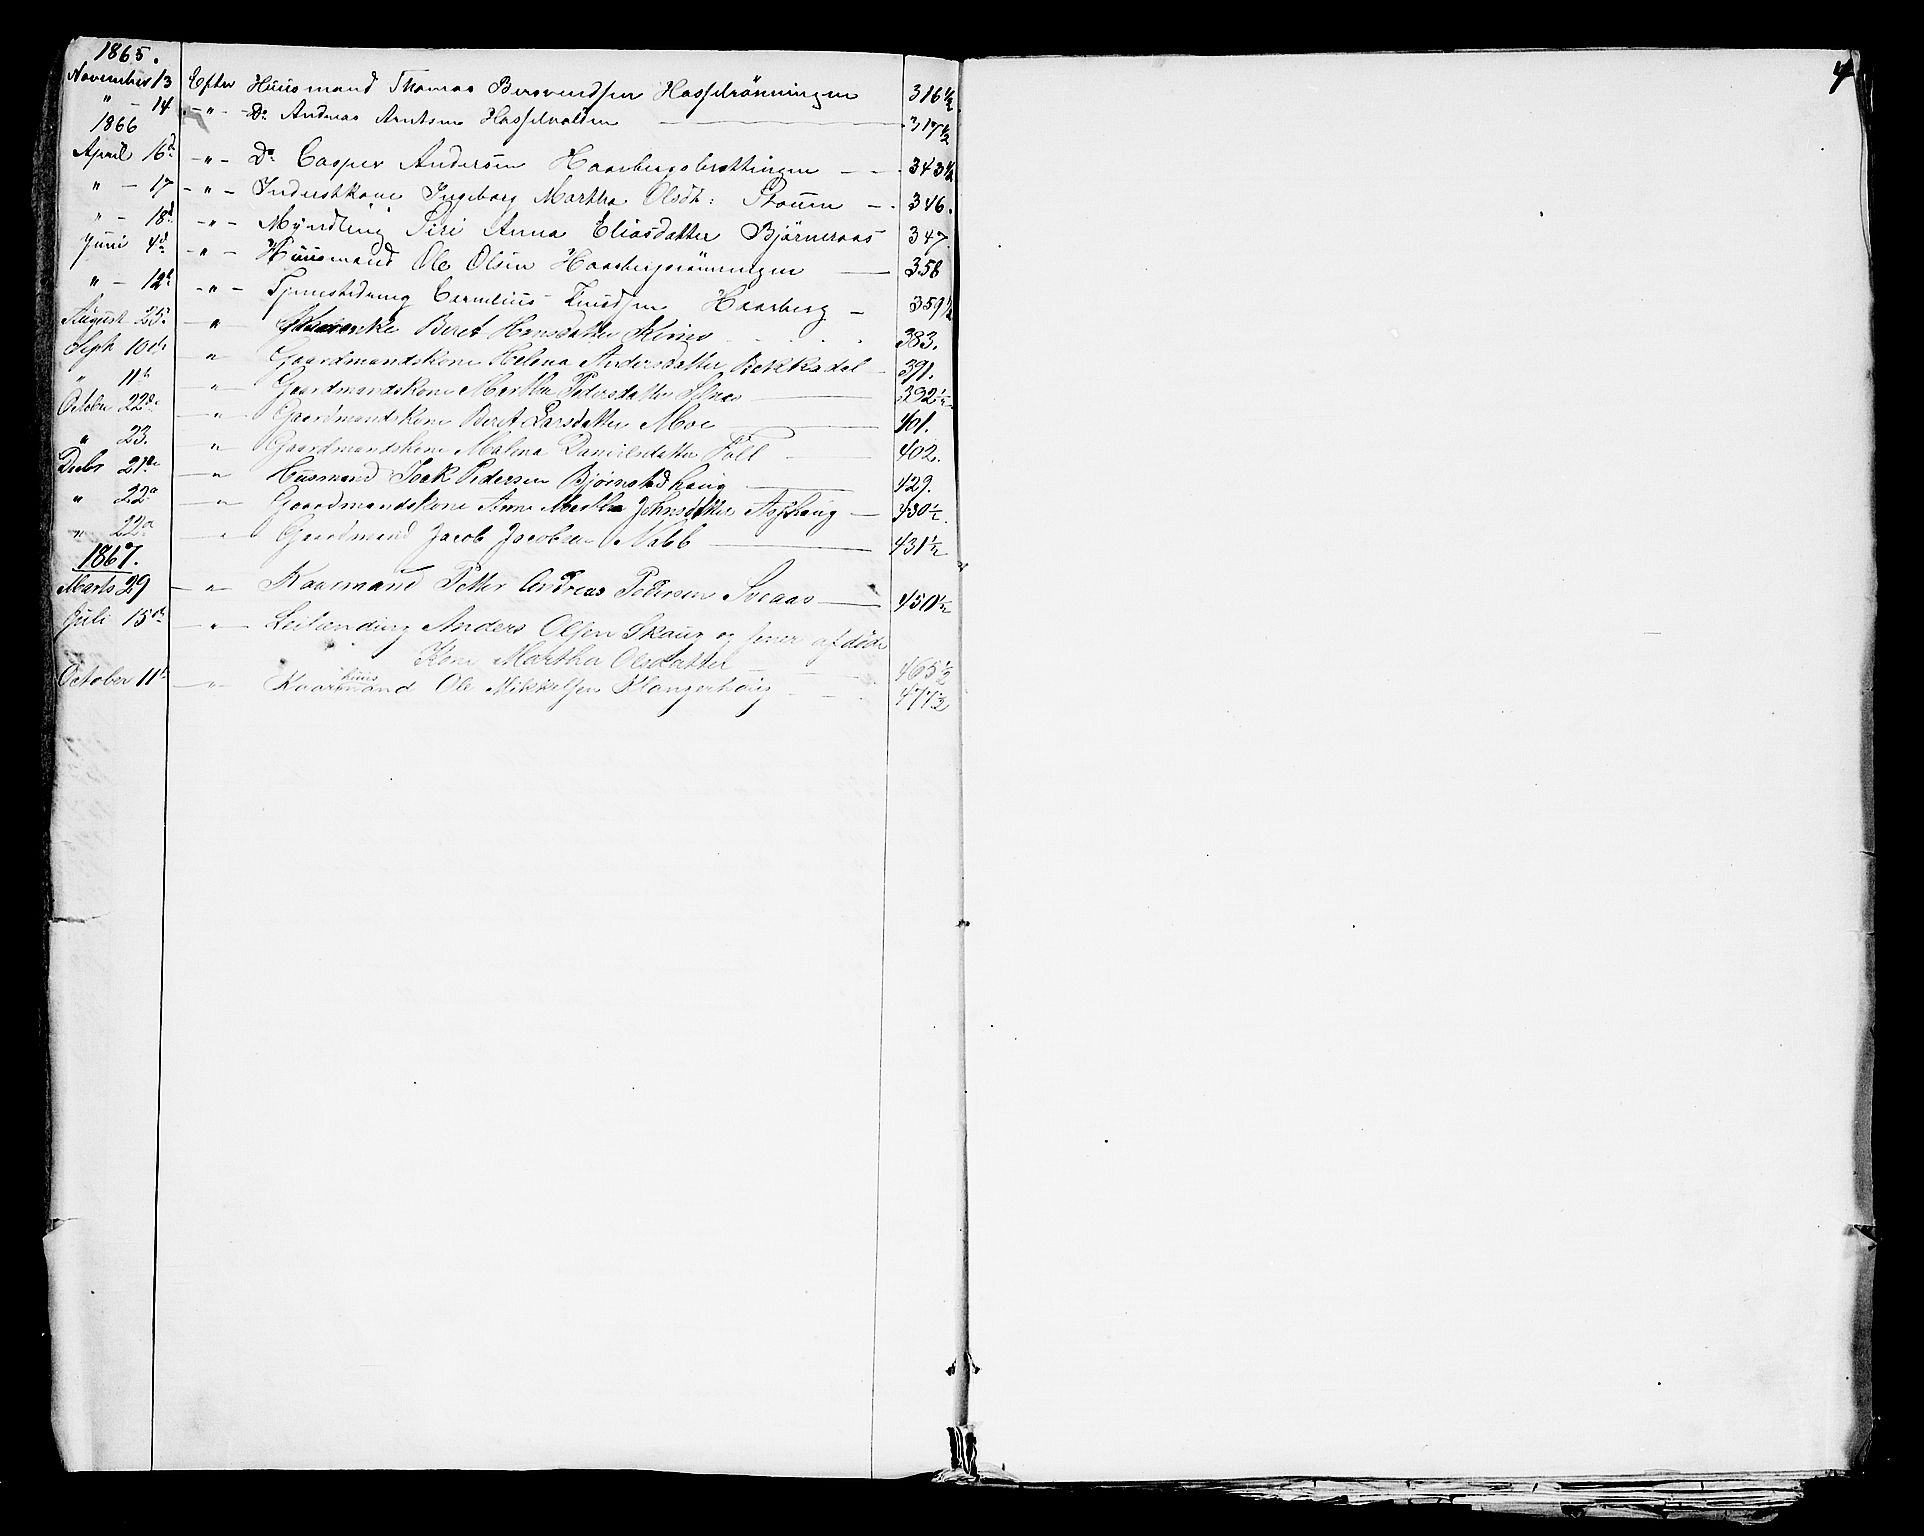 1865.
November 13 Efter Huusmand Thomas Bersvendsen Hasselrönningen 316 1/2
" - 14 - " - Do Andreas Arntsen Hasselvolden 317 1/2
1866
April 16d - " - Do Casper Andersen Haarbergsbrottingen 343 1/2
" - 17 - " - Inderstkone Ingeborg Martha Olsdtr: 346.
" - 18d - " - Myndling Siri Anna Eliasdatter Björneraas 347
Juni 4d - " - Huusmand Ole Olsen Haarbergsrönningen 358
" - 12t - " - Cornelius Knudsen Haarberg 359 1/2
August 25. " Beret Hansdatter 383.
Septr 10de " Gaardmandskone Helena Andersdatter Bekkadal 391.
" 11t " Gaardmandskone Martha Pedersdatter 392 1/2
October 22d " Gaardmandskone Beret Larsdatter Moe 401.
" 23. " Gaardmandskone Malena Danielsdatter Föll 402.
Decbr 21de " Husmand Pedersen Bjørnstadhaug 429.
" 22d " Gaardmandskone Anne Martha Johnsdatter 430 1/2.
" 22d " Gaardmand Jacob Jacobsen Nabb 431 1/2
1867.
Marts 29 - " - Kaarmand Petter Andreas Pedersen Sveaas 450 1/2
Juli 15de - " - Leilænding Anders Olsen Skaug og afdøde
Kone Martha Olsdatter 465 1/2
October 11t - " - Kaarmand huus Ole Mikkelsen Klangerhaug 477 1/2
4